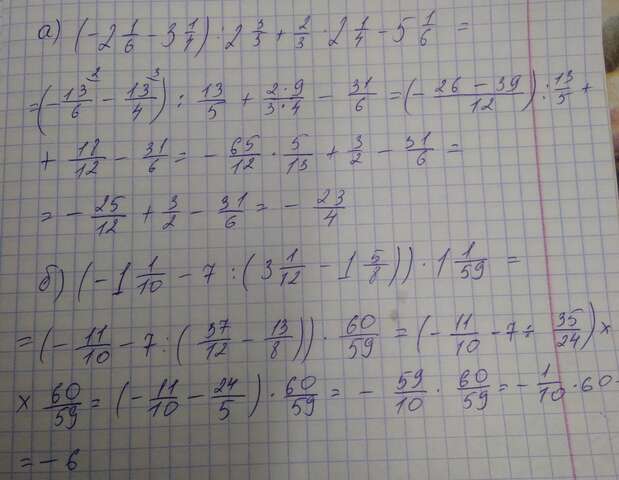 а) (-2 1/6 - 3 1/4) : 2 3/3 + 2/3 · 2 1/4 - 5 1/6 =
= (- 13/6 ² - 13/4 ³) : 13/5 + 2·9/3·4 - 31/6 = (- 26 - 39/12) : 13/5 +
+ 18/12 - 31/6 = - 65/12 · 5/13 + 3/2 - 31/6 =
= - 25/12 + 3/2 - 31/6 = - 23/4
б) (-1 1/10 - 7 : (3 1/12 - 1 5/8)) · 1 1/59 =
= (- 11/10 - 7 : (37/12 - 13/8)) · 60/59 = (- 11/10 - 7 : 35/24) ×
× 60/59 = (- 11/10 - 24/5) · 60/59 = - 59/10 · 60/59 = - 1/10 · 60 =
= - 6